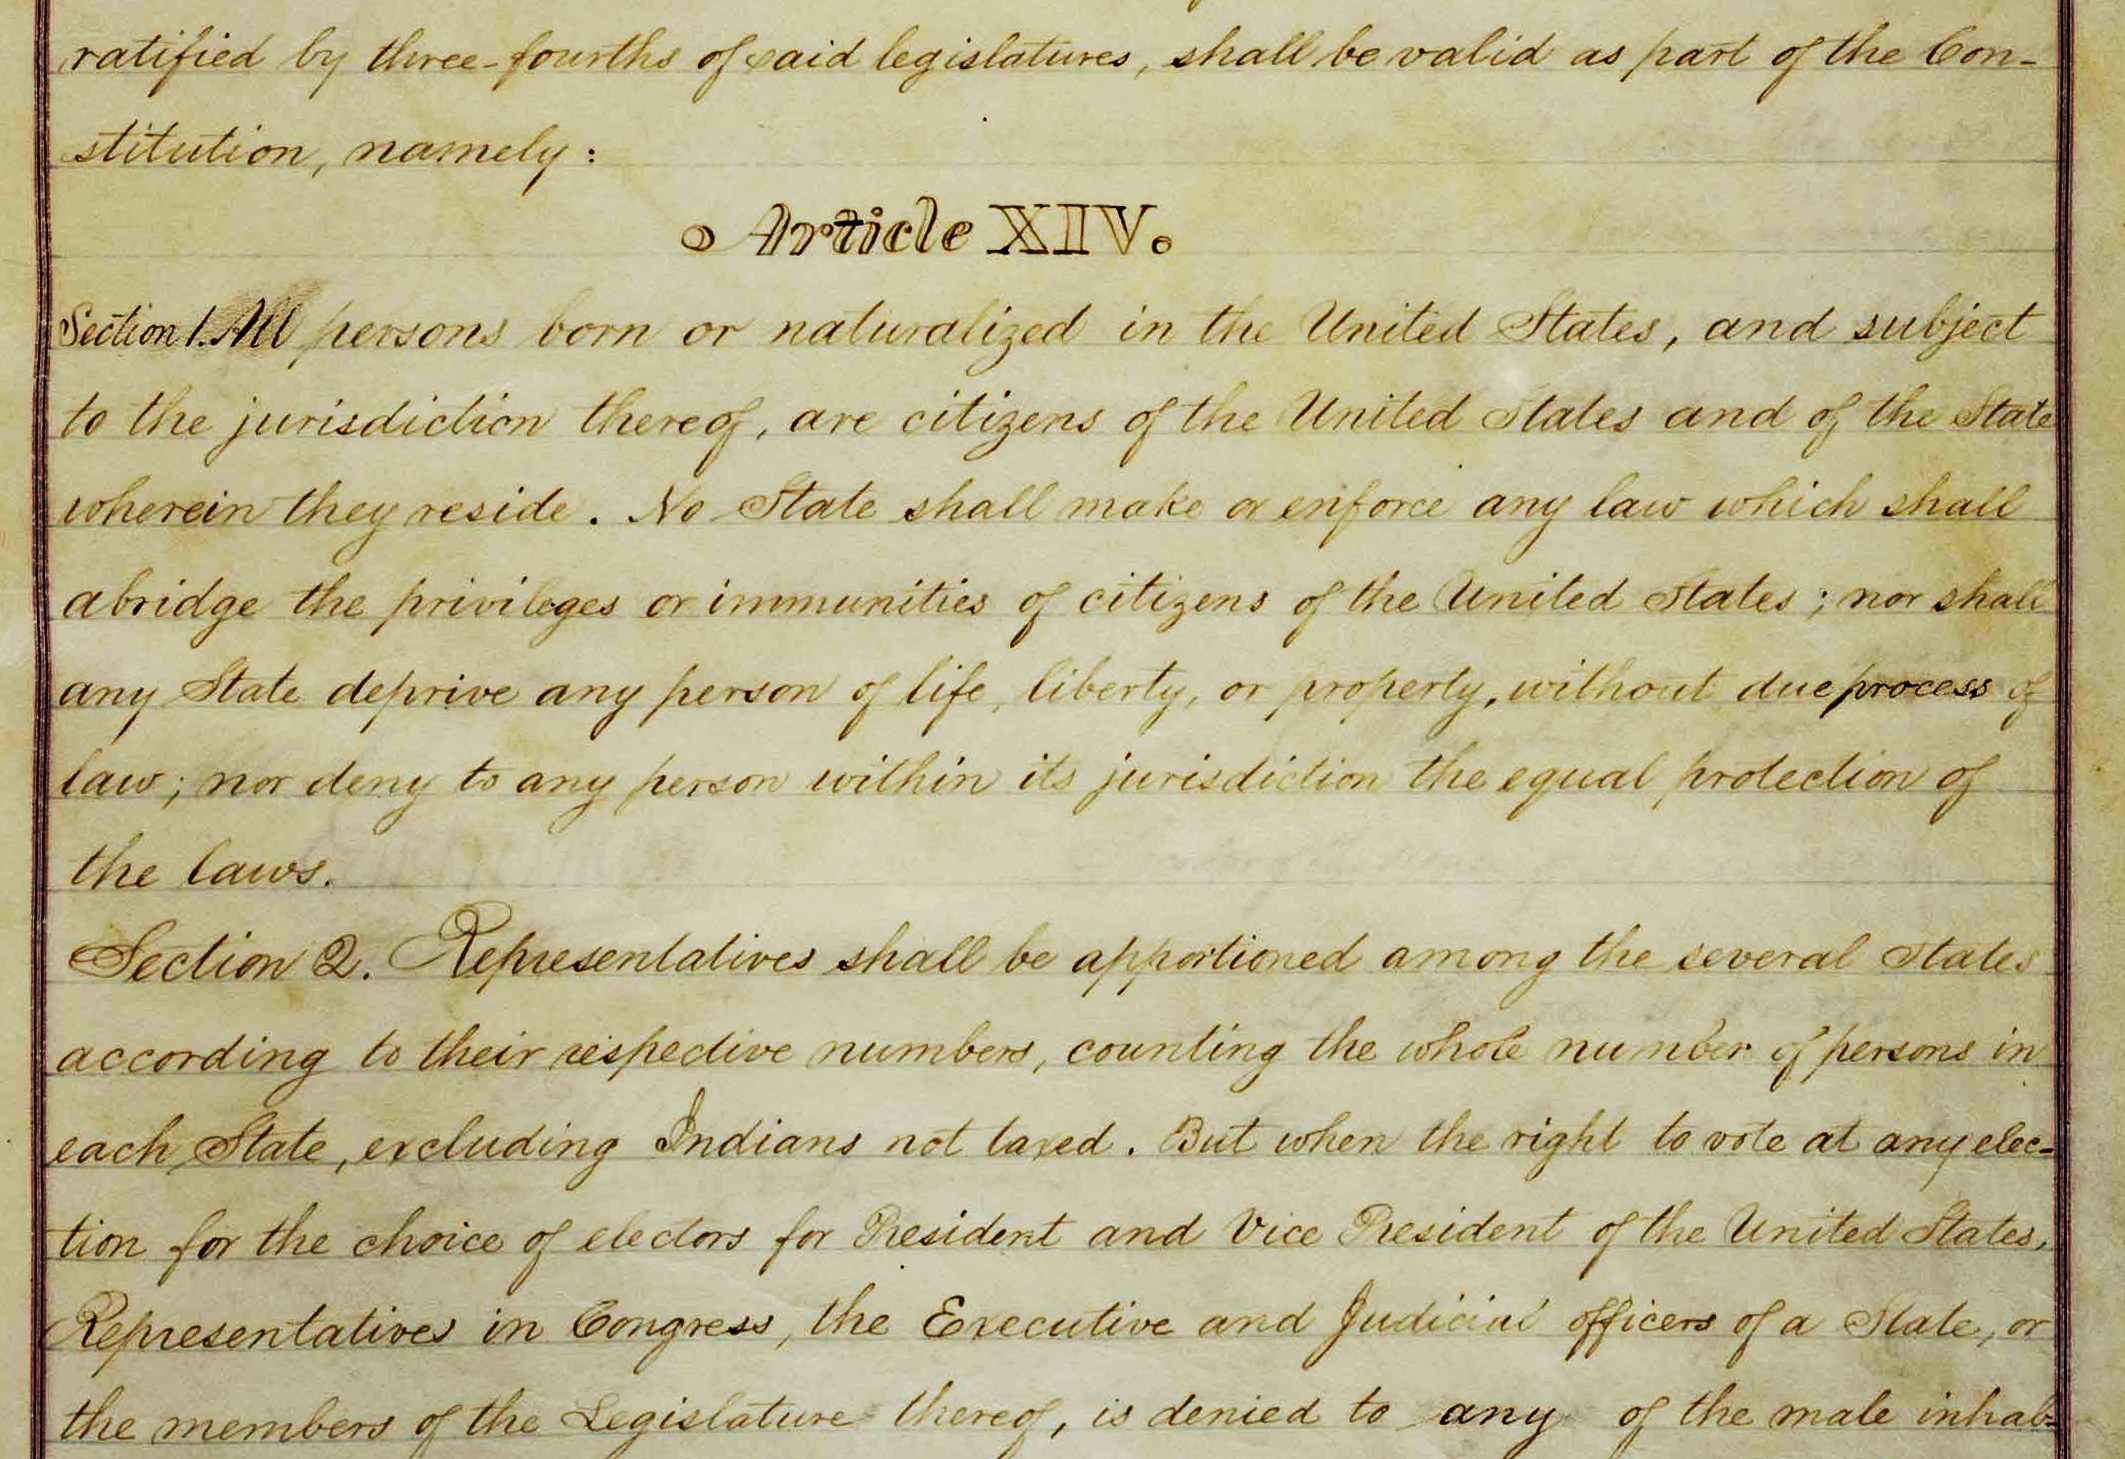 ratified by three-fourths of said legislatures, shall be valid as part of the Con-
stitution, namely:
Article XIV.
Section 1. All persons born or naturalized in the United States, and subject
to the jurisdiction thereof, are citizens of the United States and of the State
wherein they reside. No State shall make or enforce any law which shall
abridge the privileges or immunities of citizens of the United States; nor shall
any State deprive any person of life, liberty, or property, without due process of
law; nor deny to any person within its jurisdiction the equal protection of
the laws.
Section 2. Representatives shall be apportioned among the several States
according to their respective numbers, counting the whole number of persons in
each State, excluding Indians not taxed. But when the right to vote at any elec-
tion for the choice of electors for President and Vice President of the United States,
Representatives in Congress, the Executive and Judicial officers of a State, or
the members of the Legislature thereof, is denied to any of the male inhab-